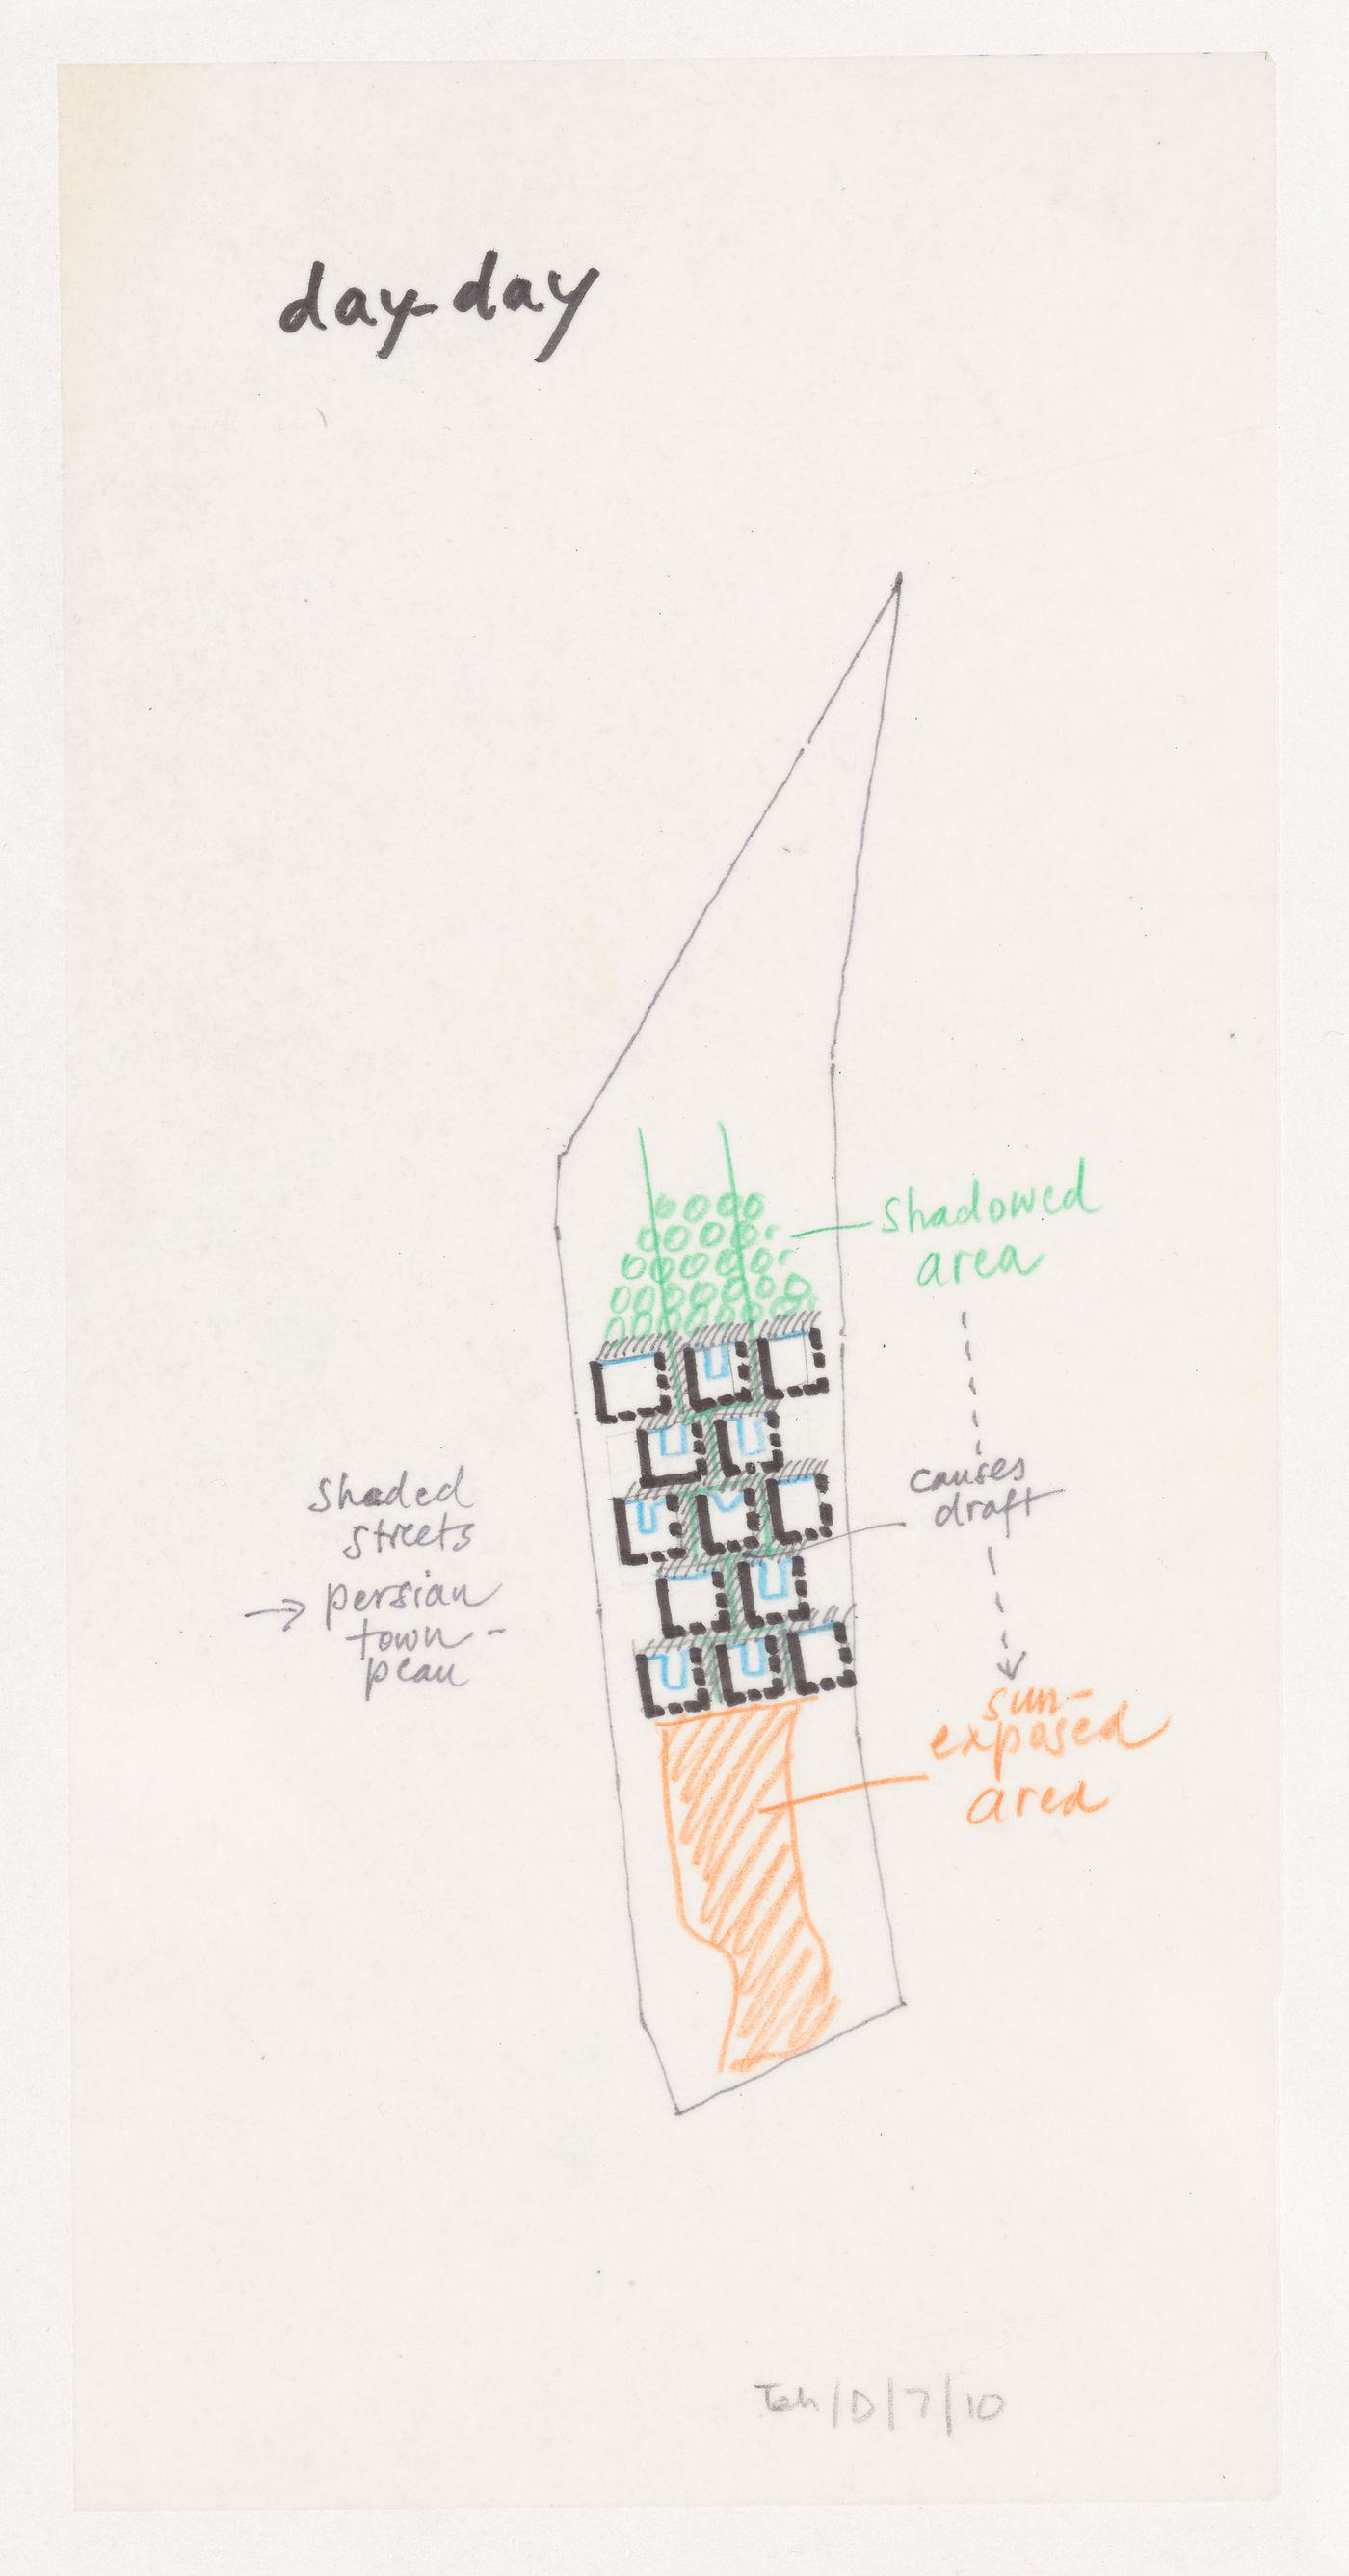 day-day
shadowed
area
causes
draft
shaded
streets
→ persian
town-
plan
sun-
exposed
area
Teh/D/7/10